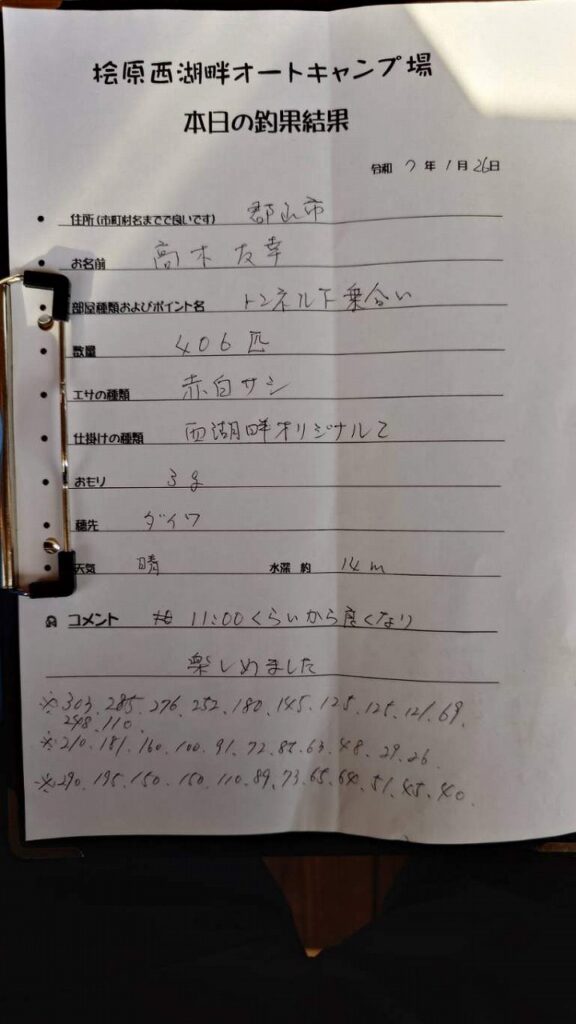 桧原西湖畔オートキャンプ場
本日の釣果結果
令和 7 年 1 月 26日
• 住所(市町村名までで良いです) 郡山市
• お名前 高木友幸
• 部屋種類およびポイント名 トンネル下乗合い
• 数量 406匹
• エサの種類 赤白サシ
• 仕掛けの種類 西湖畔オリジナル2
• おもり 3g
• 穂先 ダイワ
• 天気 晴 水深 約 14m
コメント 11:00くらいから良くなり
楽しめました
※303、285、276、252、180、145、125、125、121、69、
248、110、
※210、181、160、100、91、72、87、63、48、29、26、
※290、195、150、150、110、89、73、65、64、51、45、40、